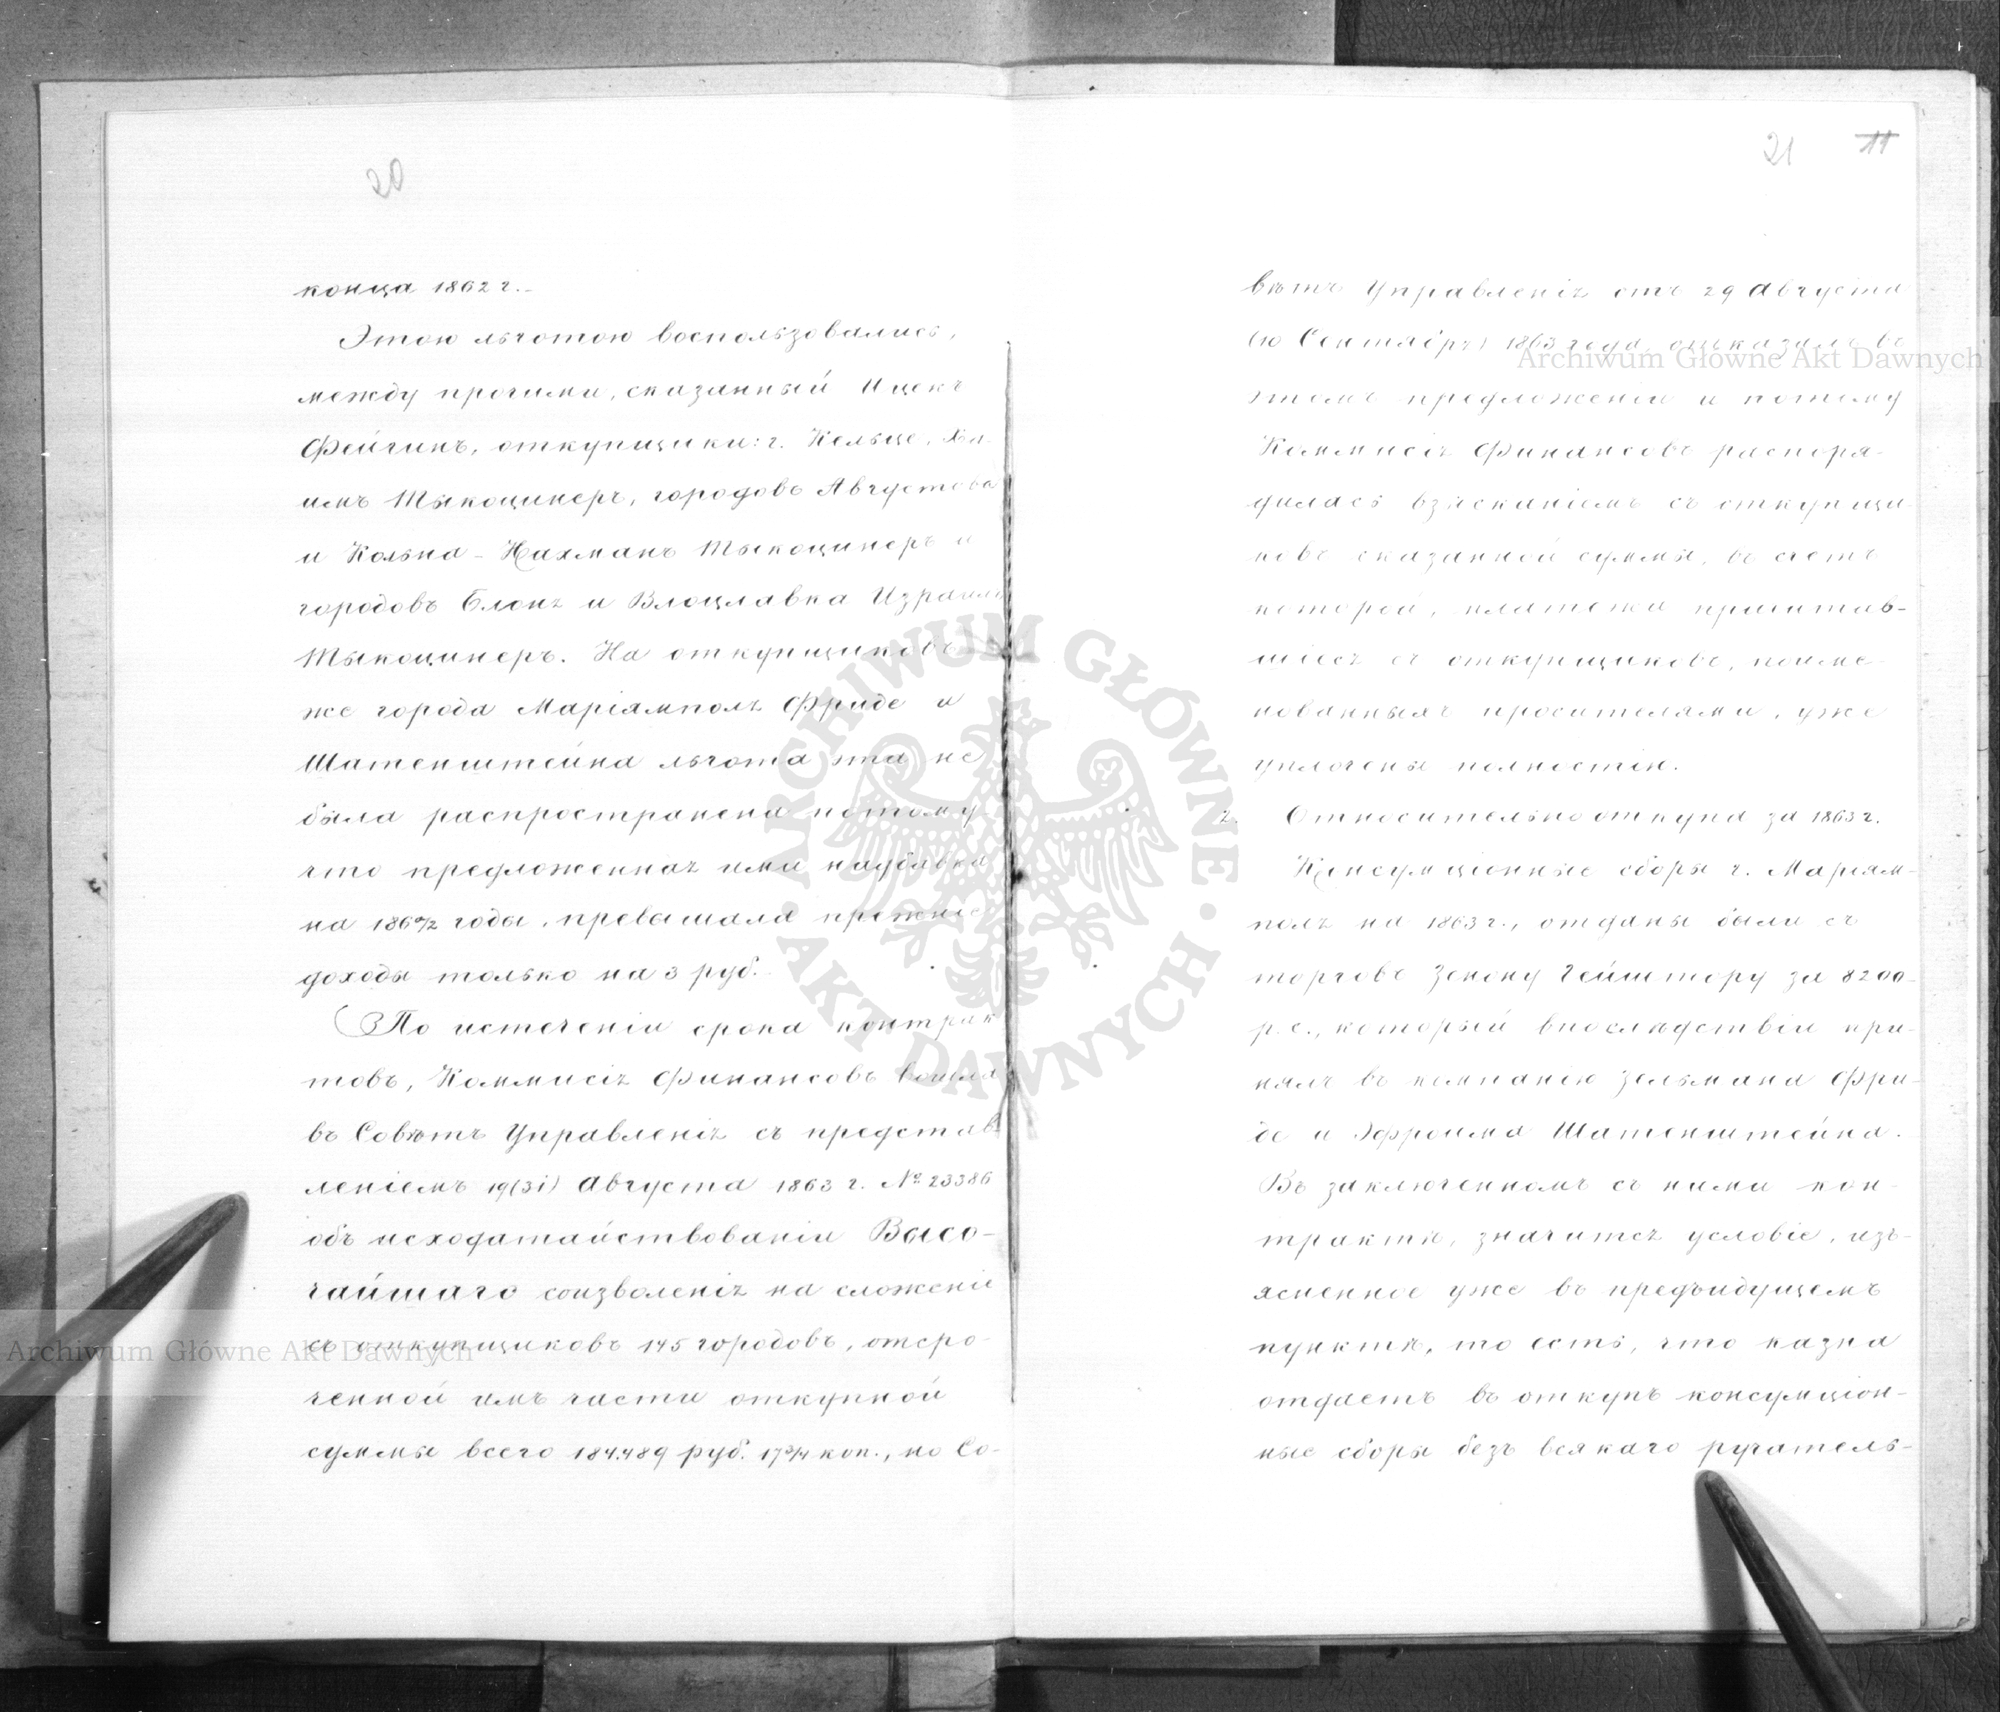 20
конца 1862 г.
Этою льготою воспользовались,
между прочими, сказанный Ицекъ
Фейгинъ, откупщики: г. Кельце, Ха-
имъ Тыкоцинеръ, городовъ Августова
и Кольна - Нахманъ Тыкоцинеръ и
городовъ Блоня и Влоцлавка Израиль
Тыкоцинеръ. На откупщиковъ
же города Маріямполя Фриде и
Шатенштейна льгота эта не
была распространена потому
что предложенная ими надбавка
на 1860/2 годы, превышала прежніе
доходы только на 3 руб.
По истеченіи срока контрак-
товъ, Коммисія Финансовъ вошла
въ Совѣтъ Управленія съ представ-
леніемъ 19 (31) Августа 1863 г. № 23386
объ исходатайствованіи Высо-
чайшаго соизволенія на сложеніе
съ откупщиковъ 145 городовъ, отсро-
ченной имъ части откупной
суммы всего 184.489 руб. 17 3/4 коп., но Со-
21 11
вѣтъ Управленія отъ 29 Августа
(10 Сентября) 1863 года, отказалъ въ
этомъ предложеніи и потому
Коммисія Финансовъ распоря-
дилась взысканіемъ съ откупщи-
ковъ сказанной суммы, въ счетъ
которой, платежи причитав-
шіеся съ откупщиковъ, поиме-
нованныхъ просителями, уже
уплочены полностію.
2. Относительно откупа за 1863 г.
Консумціонные сборы г. Маріям-
поля на 1863 г., отданы были съ
торговъ Зенону Гейштору за 8200
р. с., который впослѣдствіи при-
нялъ въ компанію Зельмана Фри-
де и Эфроима Шатенштейна.
Въ заключенномъ съ ними кон-
трактѣ, значится условіе, изъ-
ясненное уже въ предъидущемъ
пунктѣ, то есть, что казна
отдаетъ въ откупъ консумціон-
ные сборы безъ всякаго ручатель-
Archiwum Główne Akt Dawnych
Archiwum Główne Akt Dawnych
ARCHIWUM GŁÓWNE · AKT DAWNYCH ·